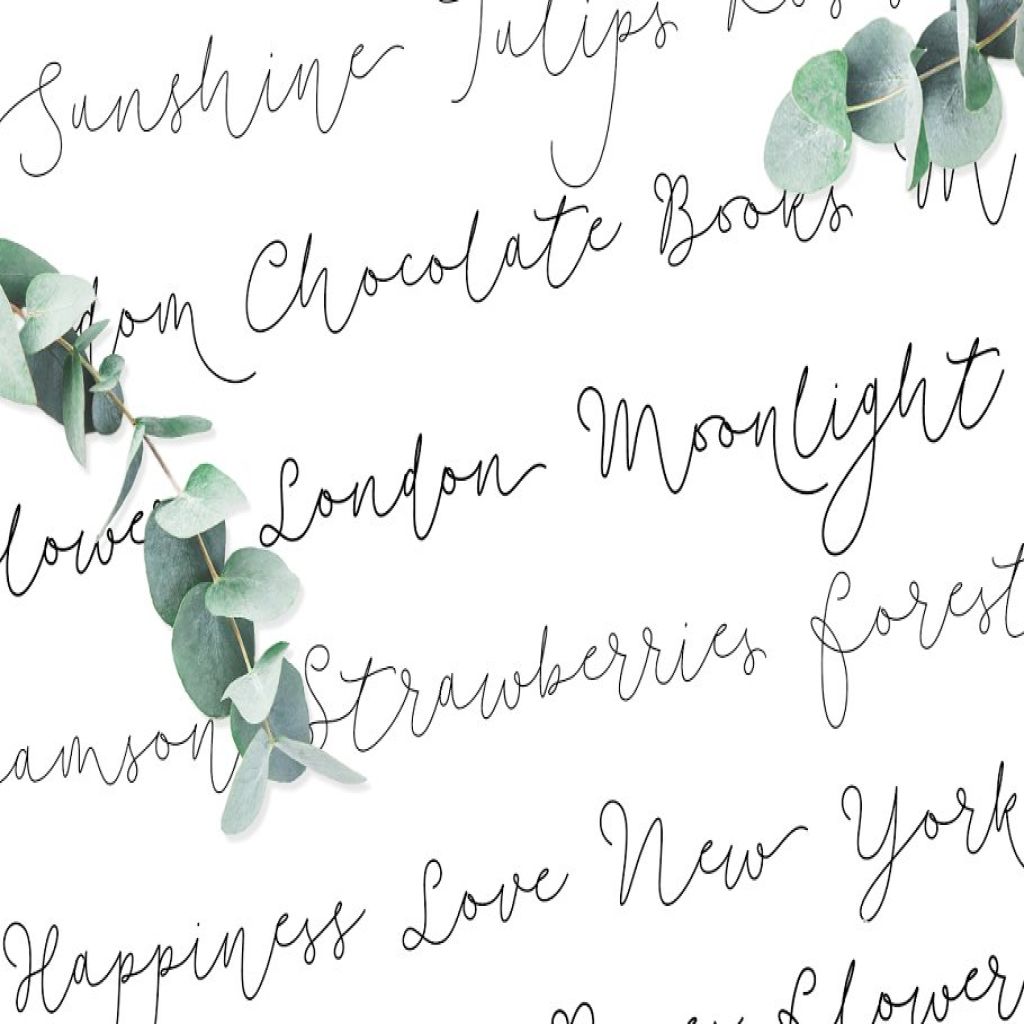 Sunshine Tulips
Chocolate Books
London Moonlight
Strawberries forest
Happiness Love New York
flower